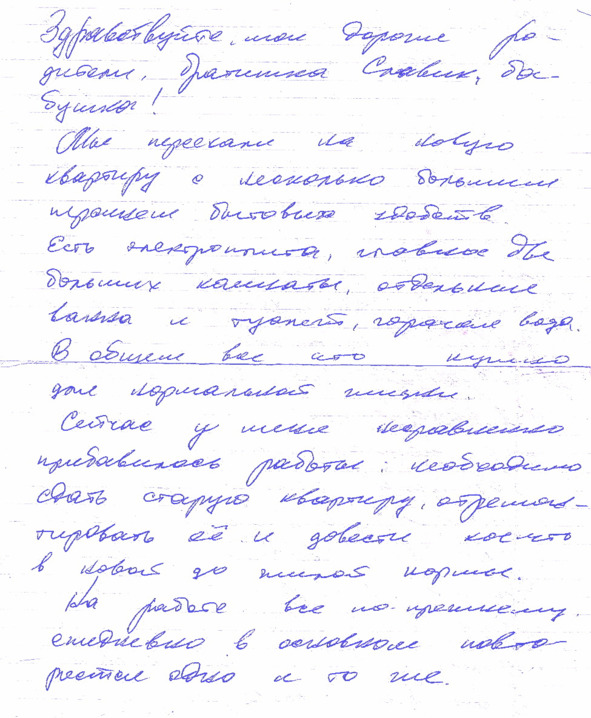 Здравствуйте, мои дорогие ро-
дители, братишка Славик, ба-
бушка!
Мы переехали на новую
квартиру с несколько большим
уровнем бытовых удобств.
Есть электроплита, главное две
больших комнаты, отдельные
ванна и туалет, горячая вода.
В общем все что нужно
для нормальной жизни.
Сейчас у меня неравненно
прибавилось работы: необходимо
сдать старую квартиру, отремон-
тировать её и довести кое-что
в новой до жилой нормы.
На работе все по-прежнему.
ежедневно в основном повто-
ряется одно и то же.